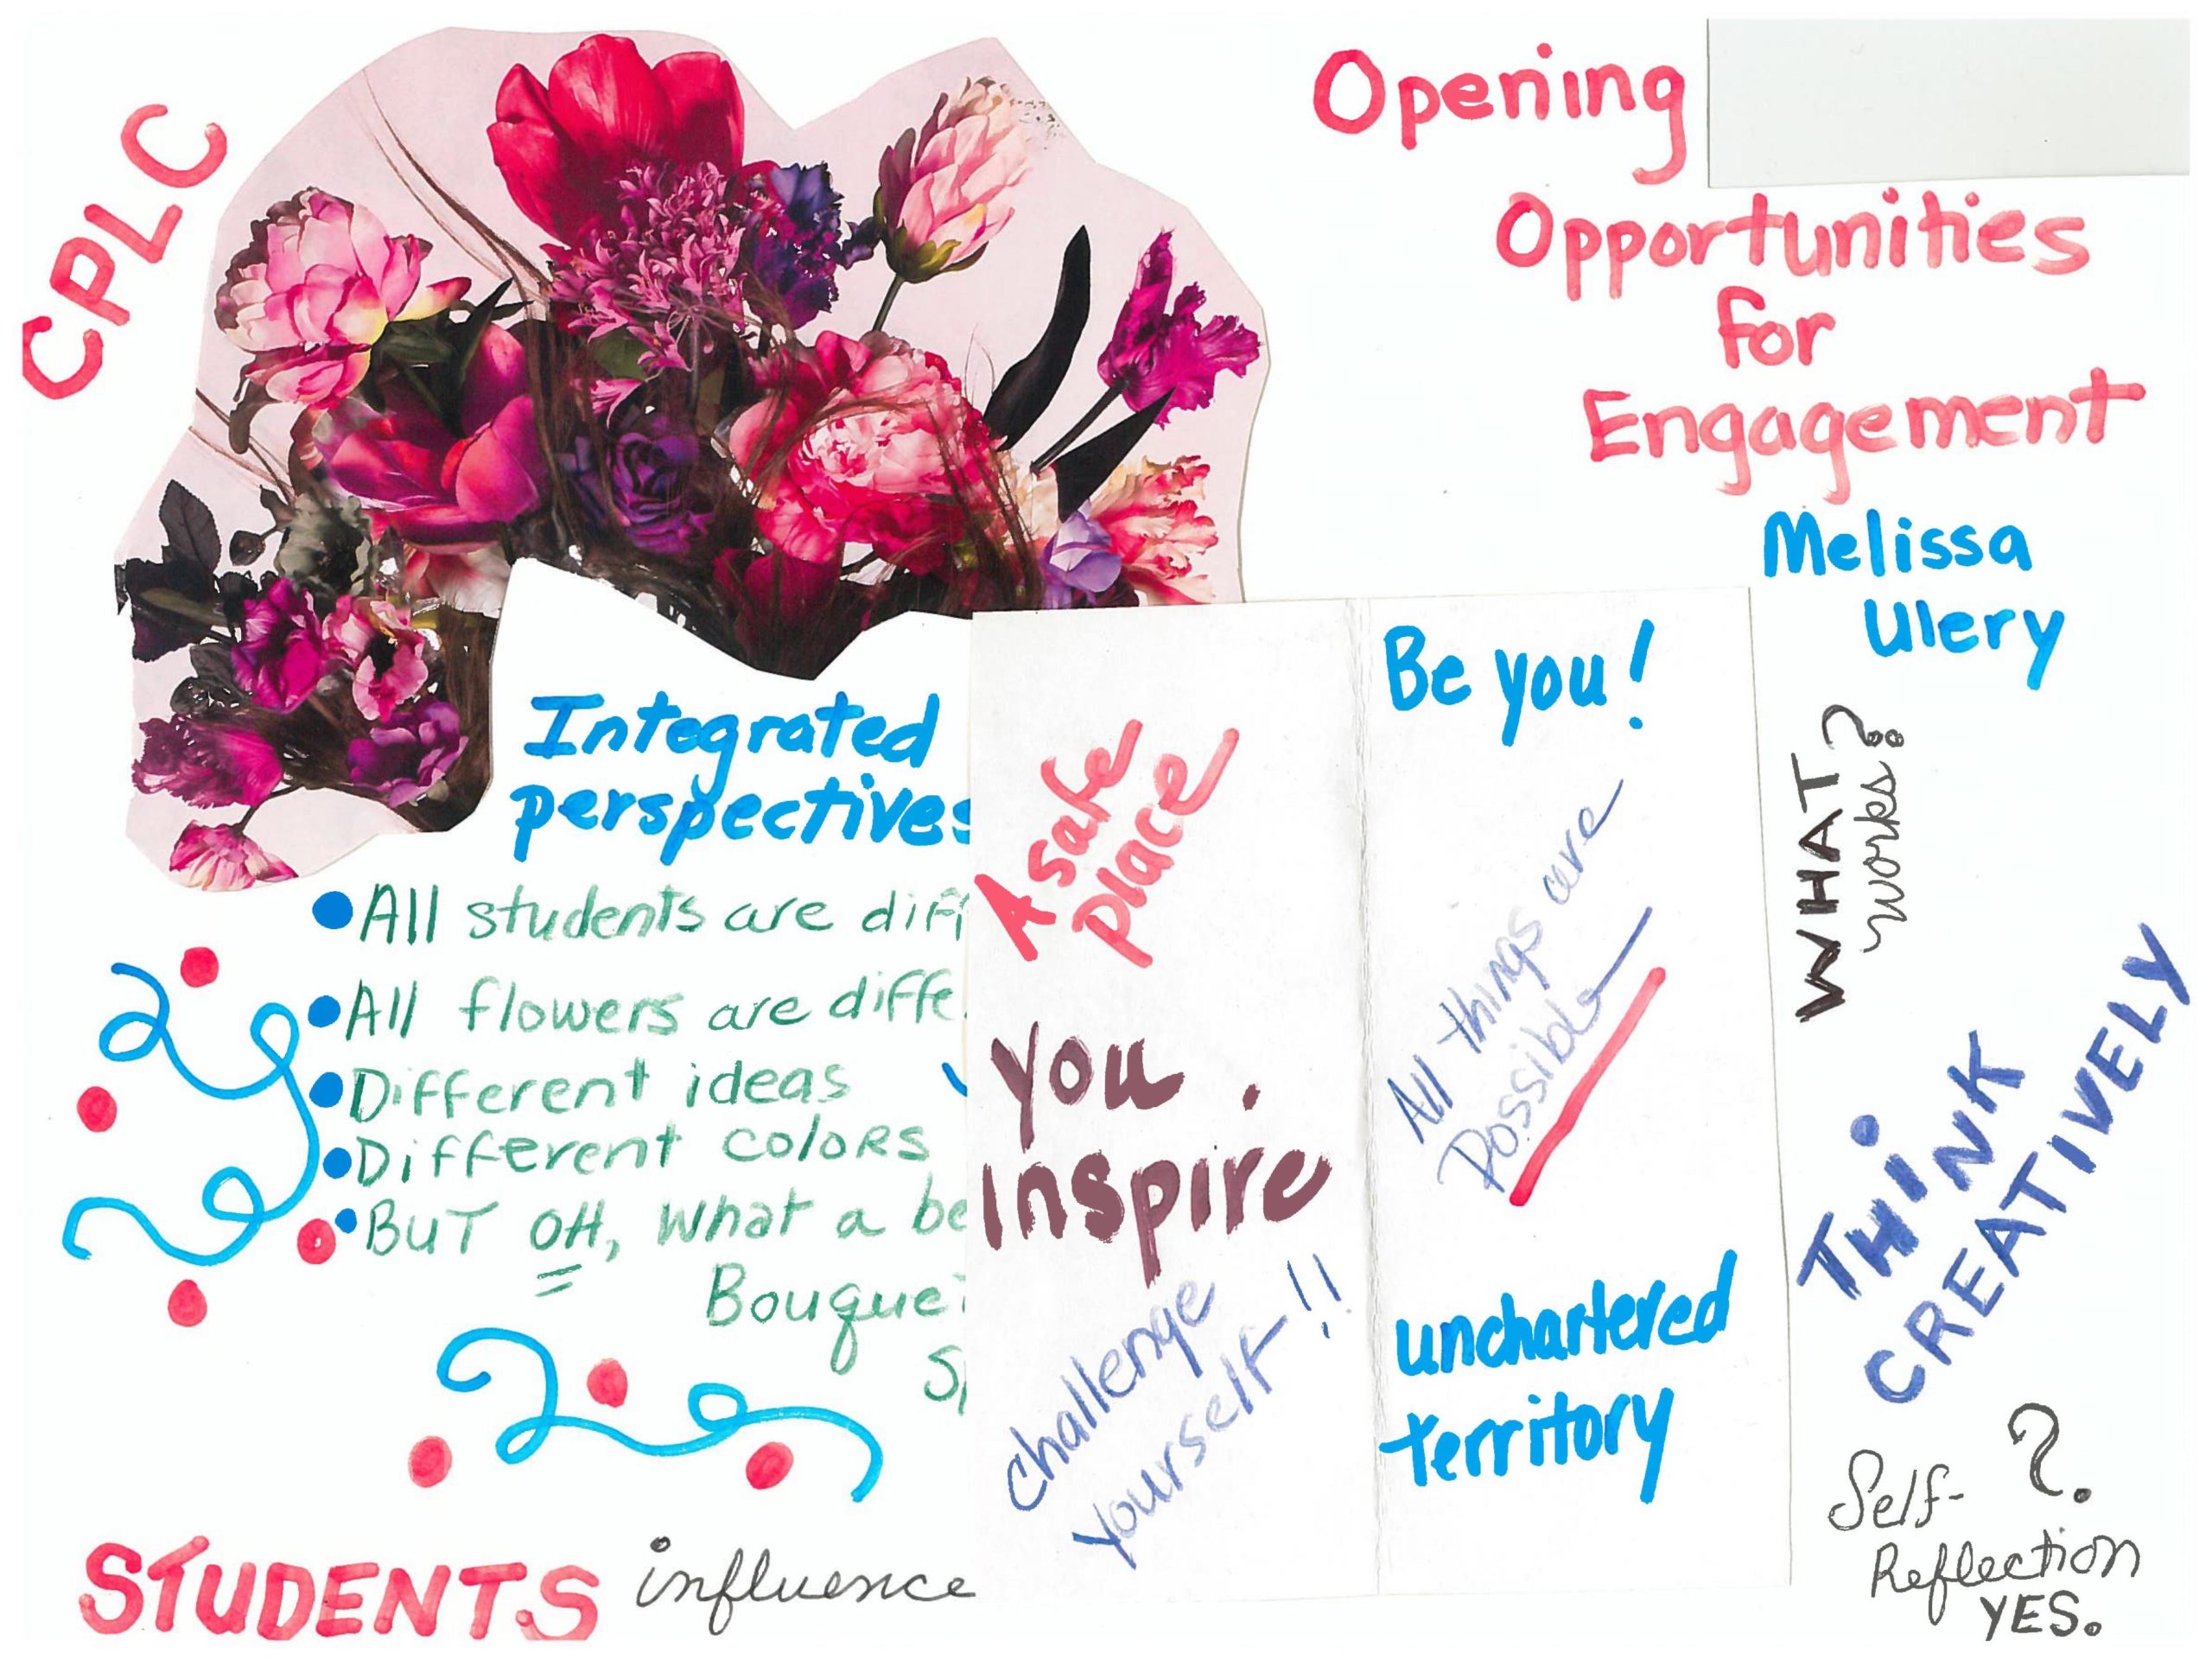 CPLC
Opening
Opportunities
for
Engagement
Melissa
Ulery
Integrated
perspectives
All students are diff
All flowers are diffe
Different ideas
Different colors
BUT OH, what a be
Bouquet
A safe
place
You
Inspire
Challenge
Yourself!!
Be you!
All things are
Possible
unchartered
territory
WHAT?
works?
THiNK
CREATIVELY
?
Self-
Reflection
YES.
STUDENTS influence